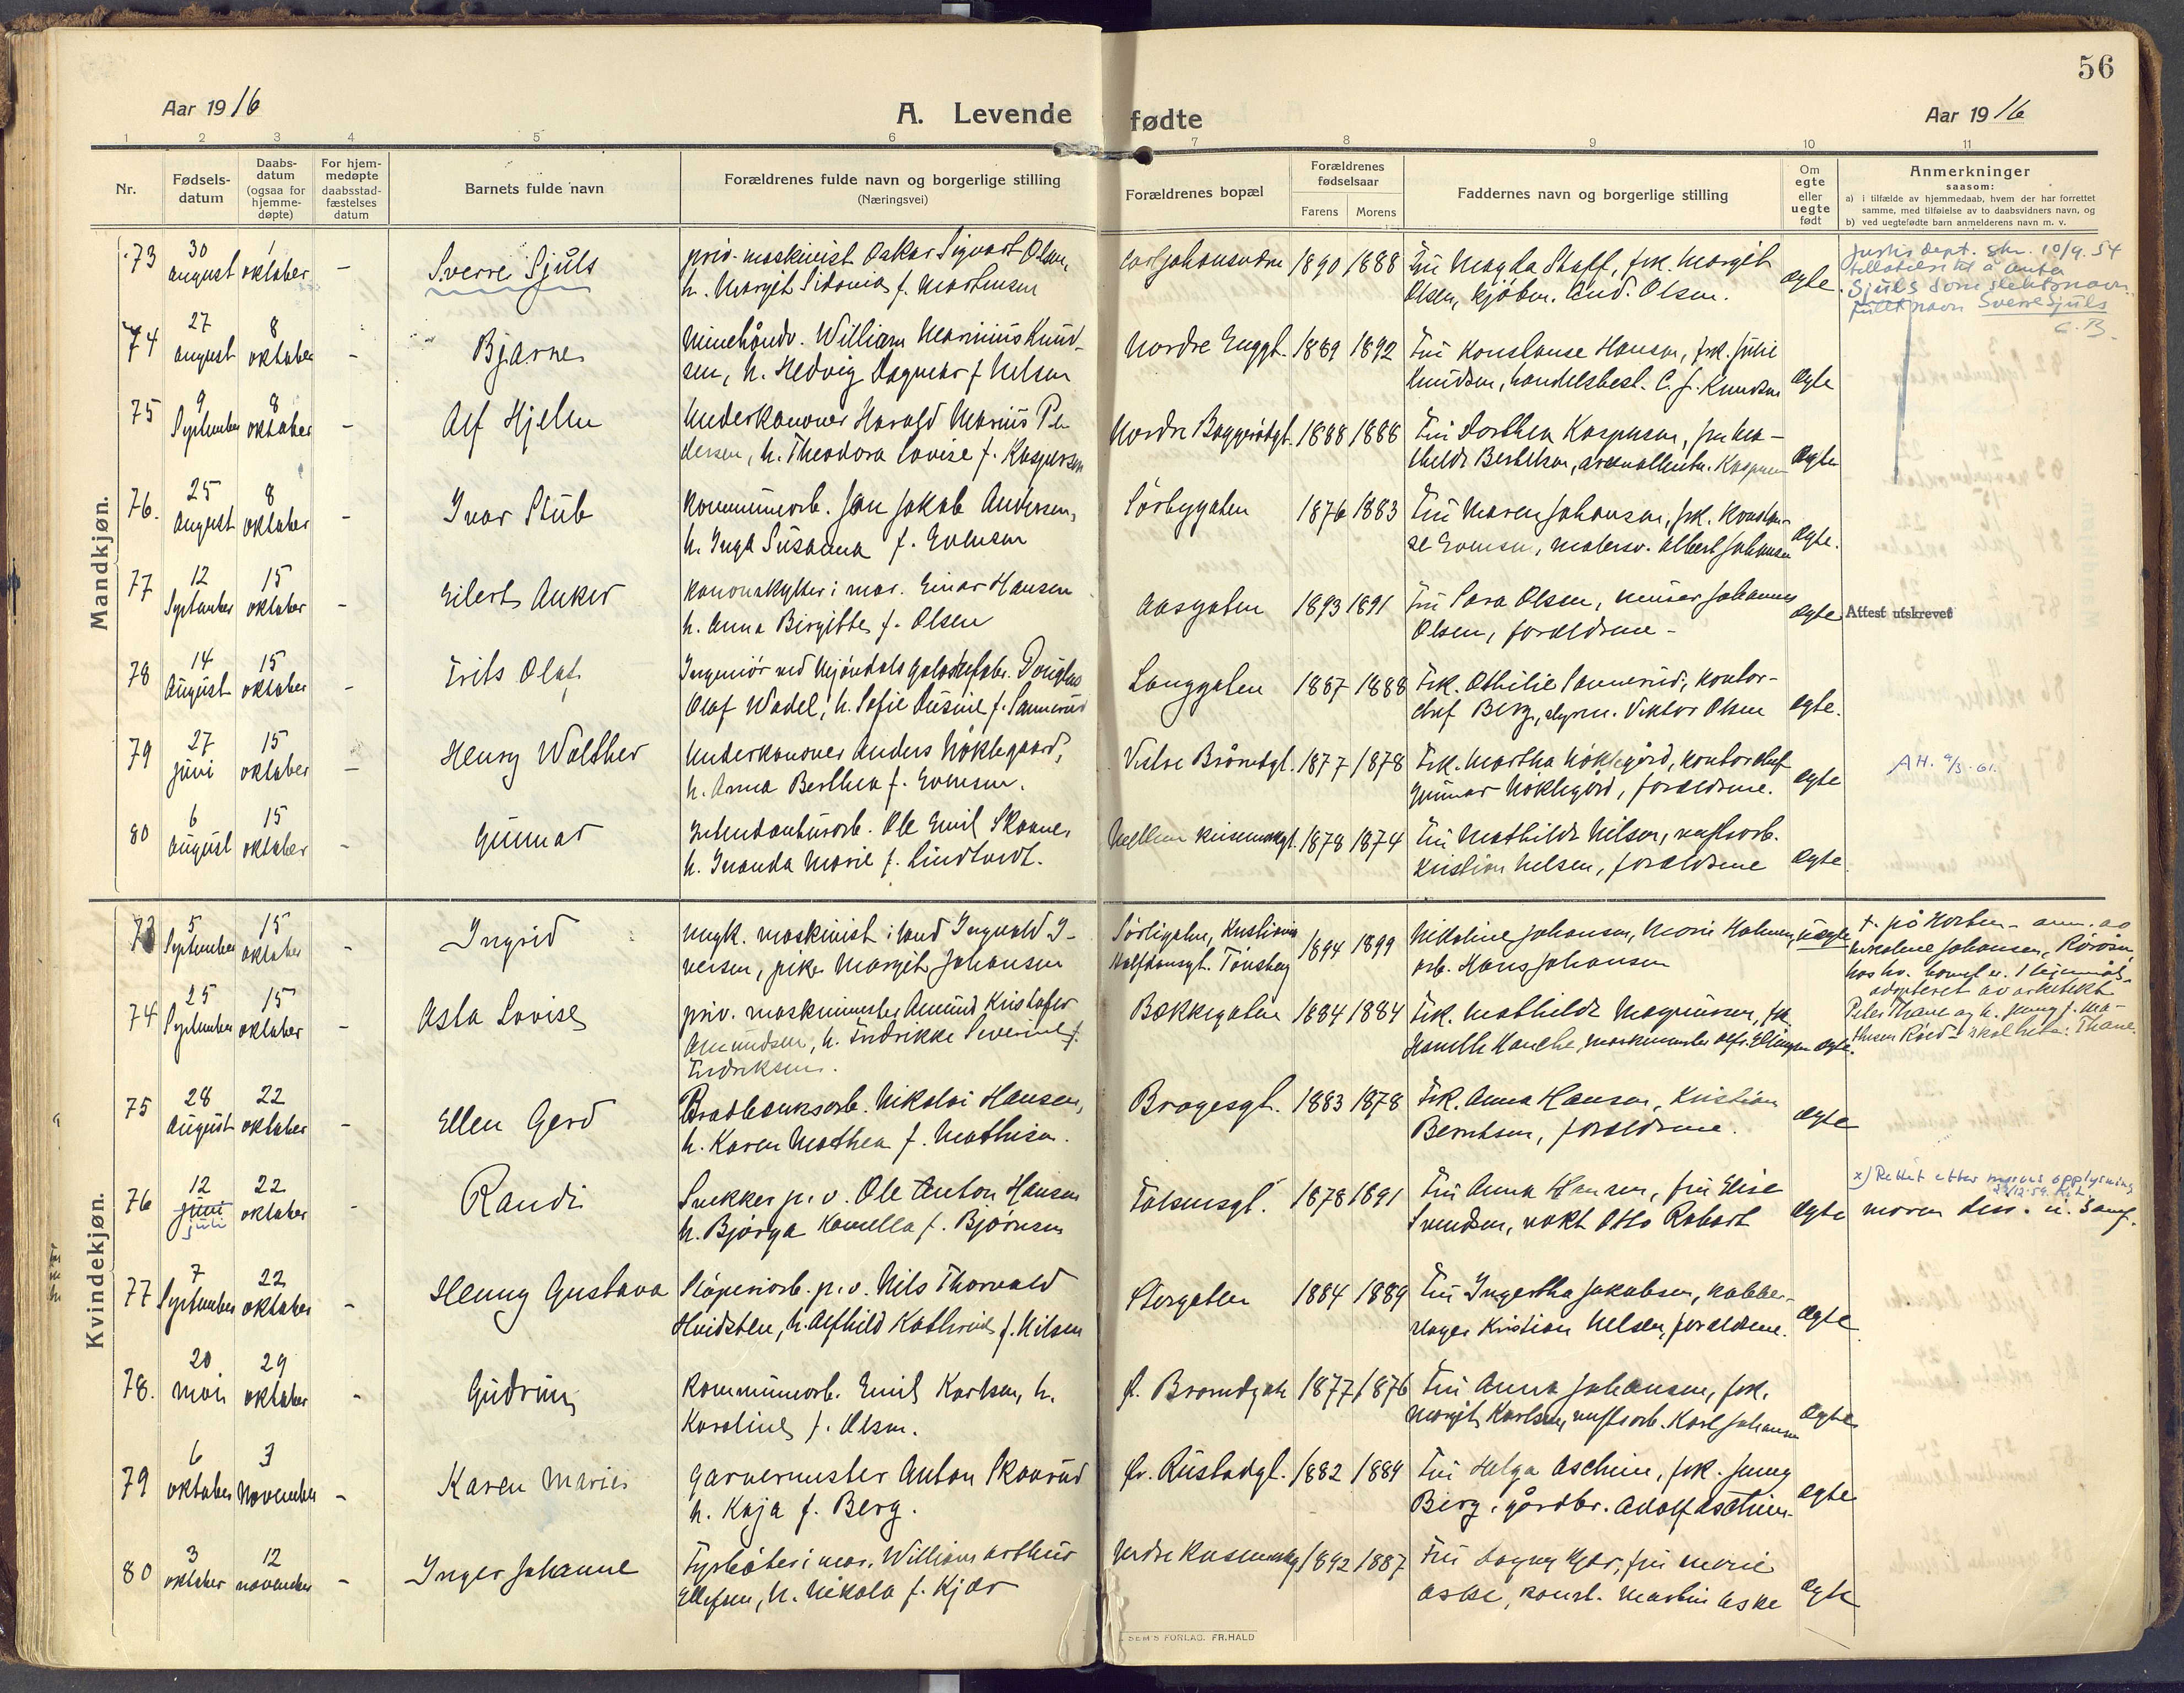 56
Aar 1916
A. Levende fødte
Aar 1916
1 2 3 4 5 6 7 8 9 10 11
Nr.
Fødsels-
datum
Daabs-
datum
(ogsaa for
hjemme-
døpte)
For hjem-
medøpte
daabsstad-
fæstelses
datum
Barnets fulde navn
Forældrenes fulde navn og borgerlige stilling
(Næringsvei)
Forældrenes bopæl
Forældrenes
fødselsaar
Farens Morens
Faddernes navn og borgerlige stilling
Om
egte
eller
uegte
født
Anmerkninger
saasom:
a) i tilfælde av hjemmedaab, hvem der har forrettet
samme, med tilføielse av to daabsvidners navn, og
b) ved uegtefødte barn anmelderens navn m. v.
Mandkjøn.
73 30 august 1 oktober – Sverre Sjuls
priv. maskinist Oskar Sigvart Olsen,
h. Margit Sidonia f. Martinsen
1890 1888
Fru Magda Staff, frk. Margit
Olsen, kjøbm. And. Olsen.
egte.
Justis dept. skr. 10/9.54
tillatelse til å anta
Sjuls som slektsnavn.
fullt navn Sverre Sjuls
C.B.
74 27 august 8 oktober – Bjarne
Minehåndv. William Marinius Knud-
sen, h. Hedvig Dagmar f. Nilsen
Nordre Enggt. 1889 1892
Fru Konstanse Hansen, frk. Julie
Knudsen, handelsbest. C. J. Knudsen
egte
75 9 September 8 oktober – Alf Hjelm
Underkanoner Harald Marius Pe-
dersen, h. Theodora Lovise f. Kaspersen
Nordre Baggerødgt. 1888 1888
Fru Dorthea Kaspersen, fru Ma-
thilde Bertelsen, Kaspersen
egte
76. 25 august 8 oktober – Ivar Stub
Kommunearb. Jan Jakob Andersen,
h. Inga Susanna f. Evensen
Sørbygaten 1876 1883
Fru Maren Johansen, frk. Konstan-
se Evensen, malersv. Albert Johansen
egte.
77 12 September 15 oktober – Eilert Anker
Kanonskytter i mar. Einar Hansen
h. Anna Birgitte f. Olsen
Aasgaten 1893 1891
Fru Sara Olsen, minør Johannes
Olsen, forældrene –
egte
Attest utskrevet
78 14 August 15 oktober – Frits Olaf
Ingeniør ved Mjøndals Douglas
Olaf Wadel, h. Sofie f. Sannerud
Langgaten 1887 1888
Frk. Othilie Sannerud, kontor-
chef Berg, Viktor Olsen
egte.
79 27 juni 15 oktober – Henry Walther
Underkanoner Anders Nøklegaard,
h. Anna Berthea f. Evensen.
Vestre Brårudgt. 1877 1878
Frk. Martha Nøklegård, kontorchef
Gunnar Nøklegård, forældrene.
egte
AH. 9/3.61.
80 6 august 15 oktober – Gunnar
Ole Emil Skaane,
h. Inanda Marie f. Lindtvedt.
1878 1874
Fru Mathilde Nilsen, verftsarb.
Kristian Nilsen, forældrene
egte.
Kvindekjøn.
73 5 September 15 oktober – Ingrid
Ungk. maskinist i land Ingvald I-
versen, pike Margit Johansen
Sørligaten, Kristiania
Halfdansgt. Tønsberg
1894 1899
Nikoline Johansen, Marie Halvorsen,
arb. Hans Johansen
uegte
f. på Horten – anm. av
Nikoline Johansen,
adopteret av arkitekt
Peter Thane og h. Jenny f. Ma-
thisen Røed – skal hete: Thane.
74 25 September 15 oktober – Asta Lovise
priv. maskinmester Amund Kristofer
Amundsen, h. Fredrikke Severine f.
Fredriksen.
Bakkegaten 1884 1884
Frk. Mathilde Magnussen, frk.
Hanche, maskinmester Alfr. Ellingsen
egte.
75 28 august 22 oktober – Ellen Gerd
Nikolai Hansen,
h. Karen Mathea f. Mathisen.
Bragesgt. 1883 1878
Frk. Anna Hansen, Kristian
Berntsen, forældrene.
egte
76 12 juni juli 22 oktober – Randi
Snekker p. v. Ole Anton Hansen
h. Bjørga Kamella f. Bjørnsen
Falsensgt. 1878 1891
Fru Anna Hansen, fru Elise
Svendsen, vakt Otto Robart
egte
x) Rettet etter morens opplysning
29/12.59.
moren diss. u. samf.
77 7 September 22 oktober – Henny Gustava
Støperiarb. p. v. Nils Thorvald
Hvidsten, h. Alfhild Kathrine f. Nilsen
Storgaten 1884 1889
Fru Ingertha Jakobsen, kobber-
slager Kristian Nilsen, forældrene.
egte
78. 20 mai 29 oktober – Gudrun
Kommunearb. Emil Karlsen, h.
Karoline f. Olsen.
1877 1876
Fru Anna Johansen, frk.
Margit Karlsen, verftsarb. Karl Johansen
egte
79 6 oktober 3 November – Karen Marie
garvermester Anton Skaurud
h. Kaja f. Berg.
Ø. Rustadgt. 1882 1884
Fru Helga Aschim, frk. Jenny
Berg, gårdbr. Adolf Aschim.
egte
80 3 oktober 12 november – Inger Johanne
Fyrbøter i mar. William Arthur
Ellefsen, h. Nikola f. Kjær
1892 1887
Fru Dagny Kjær, fru Marie
Aske, konst. Martin Aske
egte
SEM'S FORLAG. FR.HALD